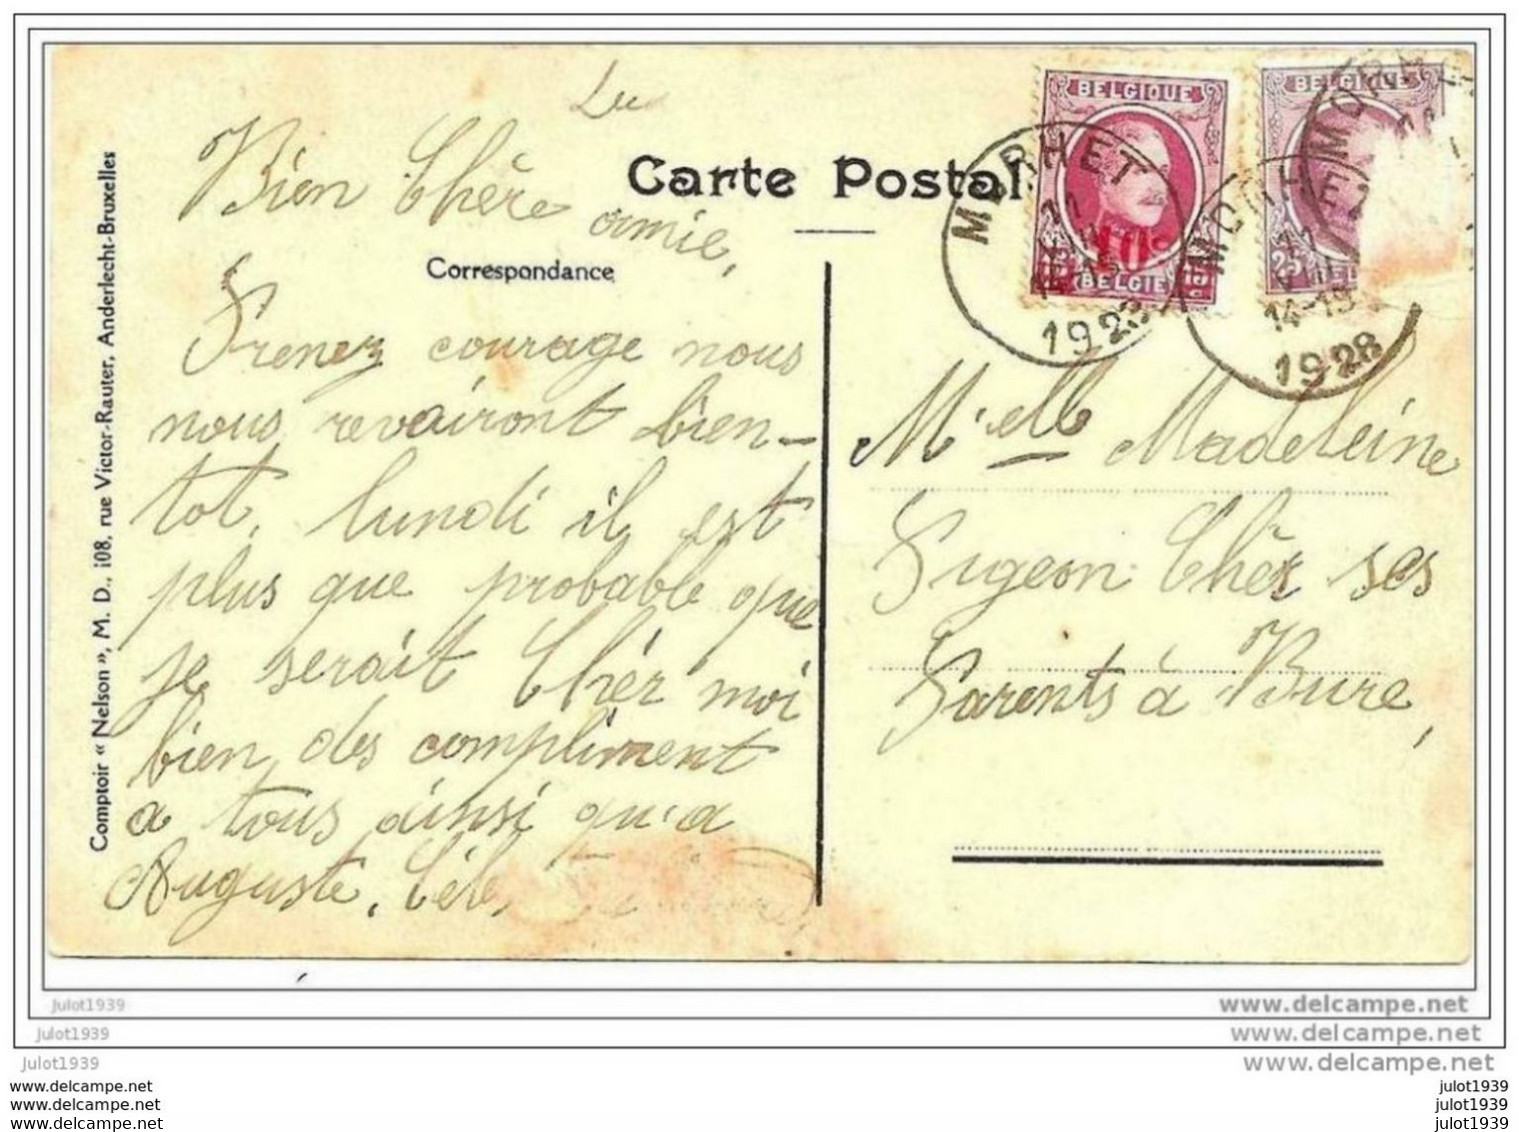 Le
Bien Chère amie,
Carte Postal
Correspondance
Prenez courage nous
nous revairont bien-
tot, lundi il est
plus que probable que
je serait Chér moi
bien des compliment
a tous ainsi qu'a
Auguste,
Comptoir « Nelson », M. D., 108, rue Victor-Rauter, Anderlecht-Bruxelles
BELGIQUE
BELGIE
10c
MORHET
1928
BELGIQUE
25
MORHET
14-15
1928
Melle Madeleine
Pigeon Chér ses
Parents à Bure,
julot1939
julot1939
julot1939
www.delcampe.net
www.delcampe.net
www.delcampe.net
www.delcampe.net
www.delcampe.net
www.delcampe.net
julot1939
julot1939
julot1939